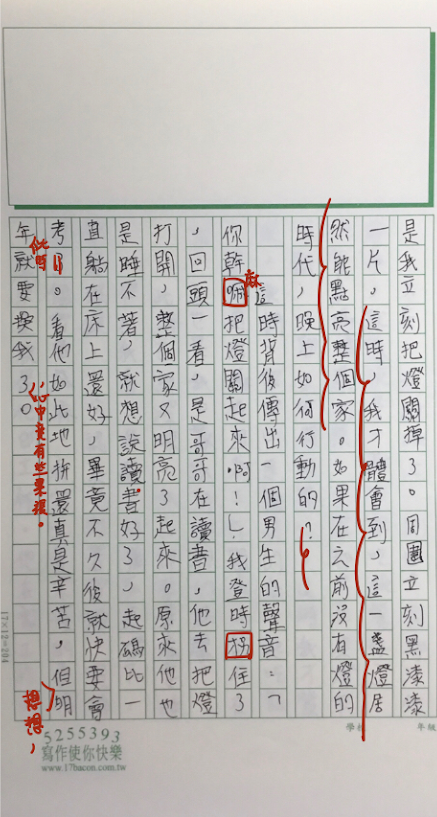 是我立刻把燈關掉了。周圍立刻黑漆漆
一片,這時,我才體會到,這一盞燈居
然能點亮整個家。如果在之前沒有燈的
時代,晚上如何行動的?
這時背後傳出一個男生的聲音:「
你幹嘛把燈關起來啊!」我登時拐住了
,回頭一看,是哥哥在讀書,他去把燈
打開,整個家又明亮了起來。原來他也
是睡不著,就想說讀書好了,起碼比一
直躺在床上還好,畢竟不久後就快要會
考。看他如此地拚還真是辛苦,但明
年就要換我了。
麻
心中竟有些棗
想想,
17×12=204
學校
年級
5255393
寫作使你快樂
www.17bacon.com.tw